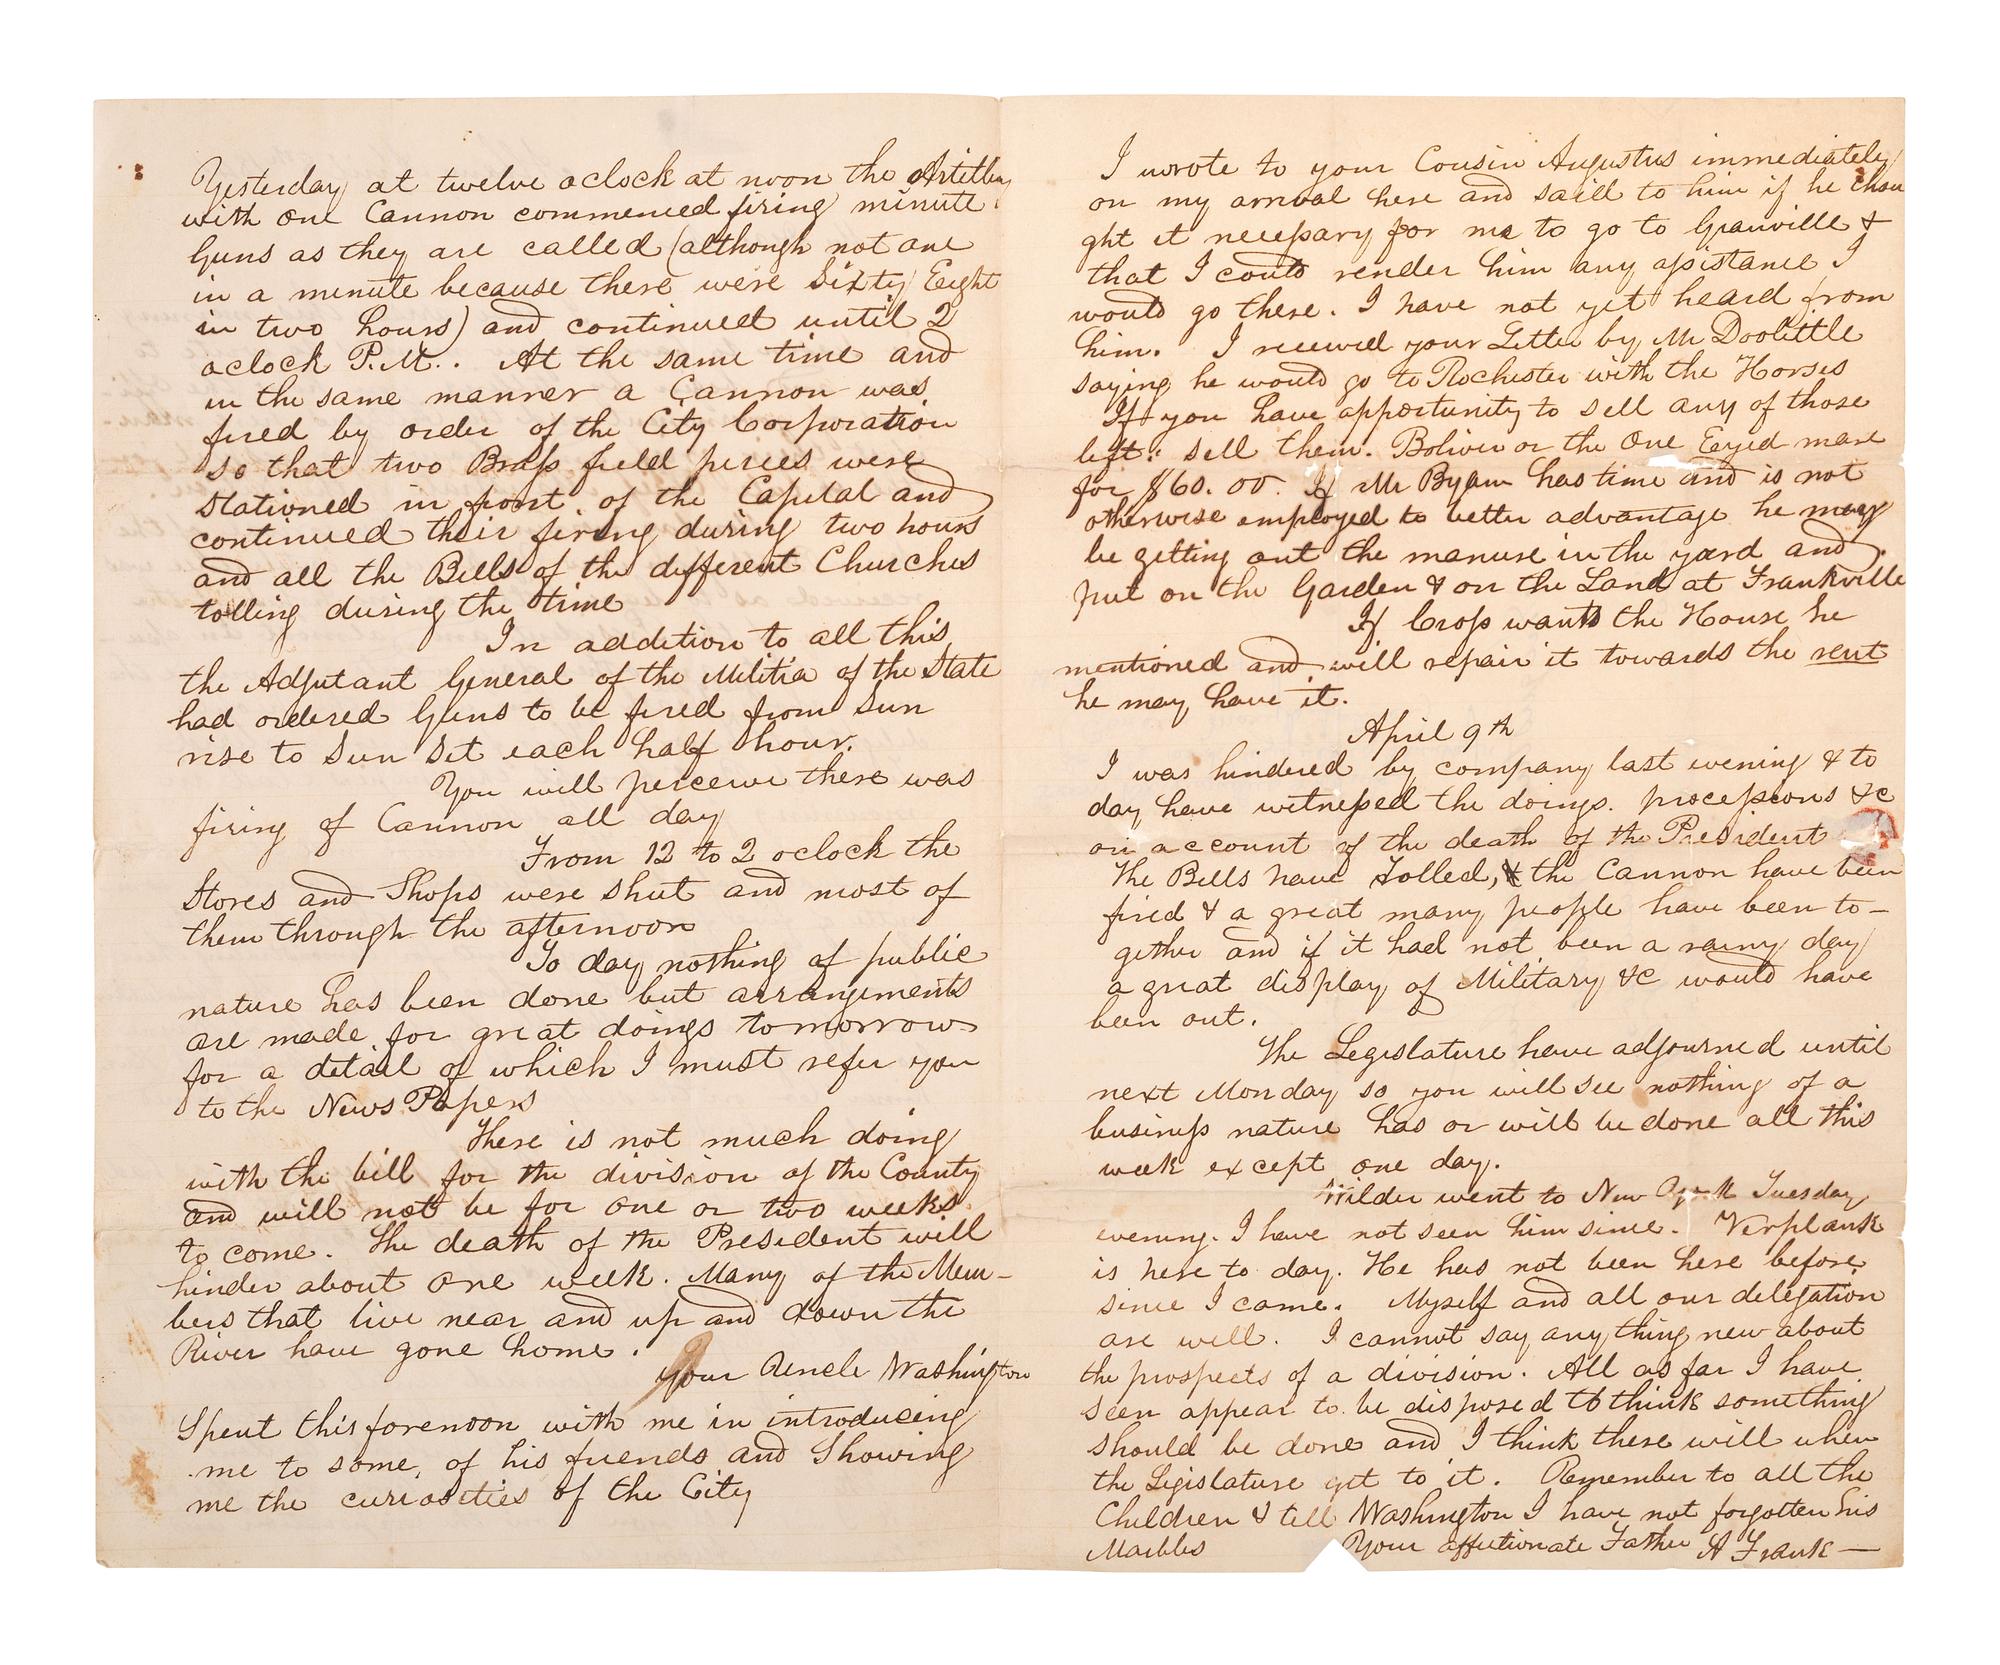 Yesterday at twelve oclock at noon the Artillery
with one Cannon commenced firing minute
Guns as they are called (although not one
in a minute because there were Sixty Eight
in two hours) and continued until 2
oclock P.M.. At the same time and
in the same manner a Cannon was
fired by order of the City Corporation
so that two Brass field pieces were
stationed in front of the Capital and
continued their firing during two hours
and all the Bells of the different Churches
tolling during the time
In addition to all this
the Adjutant General of the Militia of the State
had ordered Guns to be fired from Sun
rise to Sun Set each half hour.
You will perceive there was
firing of Cannon all day
From 12 to 2 oclock the
Stores and Shops were Shut and most of
them through the afternoon
To day nothing of public
nature has been done but arrangements
are made for great doings tomorrow
for a detail of which I must refer you
to the News Papers
There is not much doing
with the bill for the division of the County
and will not be for one or two weeks
to come. The death of the President will
hinder about one week. Many of the Mem-
bers that live near and up and down the
River have gone home.
Your Uncle Washington
Spent this forenoon with me in introducing
me to some, of his friends and Showing
me the curiosities of the City
I wrote to your Cousin Augustus immediately
on my arrival here and saill to him if he thou
ght it necessary for me to go to Granville &
that I could render him any assistance I
would go there. I have not yet heard from
him. I received your Letter by Mr Doolittle
saying he would go to Rochester with the Horses
If you have opportunity to sell any of those
left: sell them. Boliver or the One Eeyed mare
for $60.00. If Mr Byam has time and is not
otherwise employed to better advantage he may
be getting out the manure in the yard and
put on the Garden & on the Land at Frankville
If Cross wants the House he
mentioned and will repair it towards the rent
he may have it.
April 9th
I was hindered by company last evening & to
day have witnessed the doings. processions &c
on account of the death of the President
The Bells have Tolled, & the Cannon have been
fired & a great many people have been to-
gether and if it had not been a rainy day
a great display of Military &c would have
been out.
The Legislature have adjourned until
next Monday so you will see nothing of a
business nature has or will be done all this
week except one day.
Wilder went to New York Tuesday
evening. I have not seen him since. Verplank
is here to day. He has not been here before
since I came. Myself and all our delegation
are well. I cannot say any thing new about
the prospects of a division. All as far I have
seen appear to be disposed to think something
should be done and I think there will when
the Legislature get to it. Remember to all the
Children & tell Washington I have not forgotten his
Marbles Your affectionate Father A Frank—